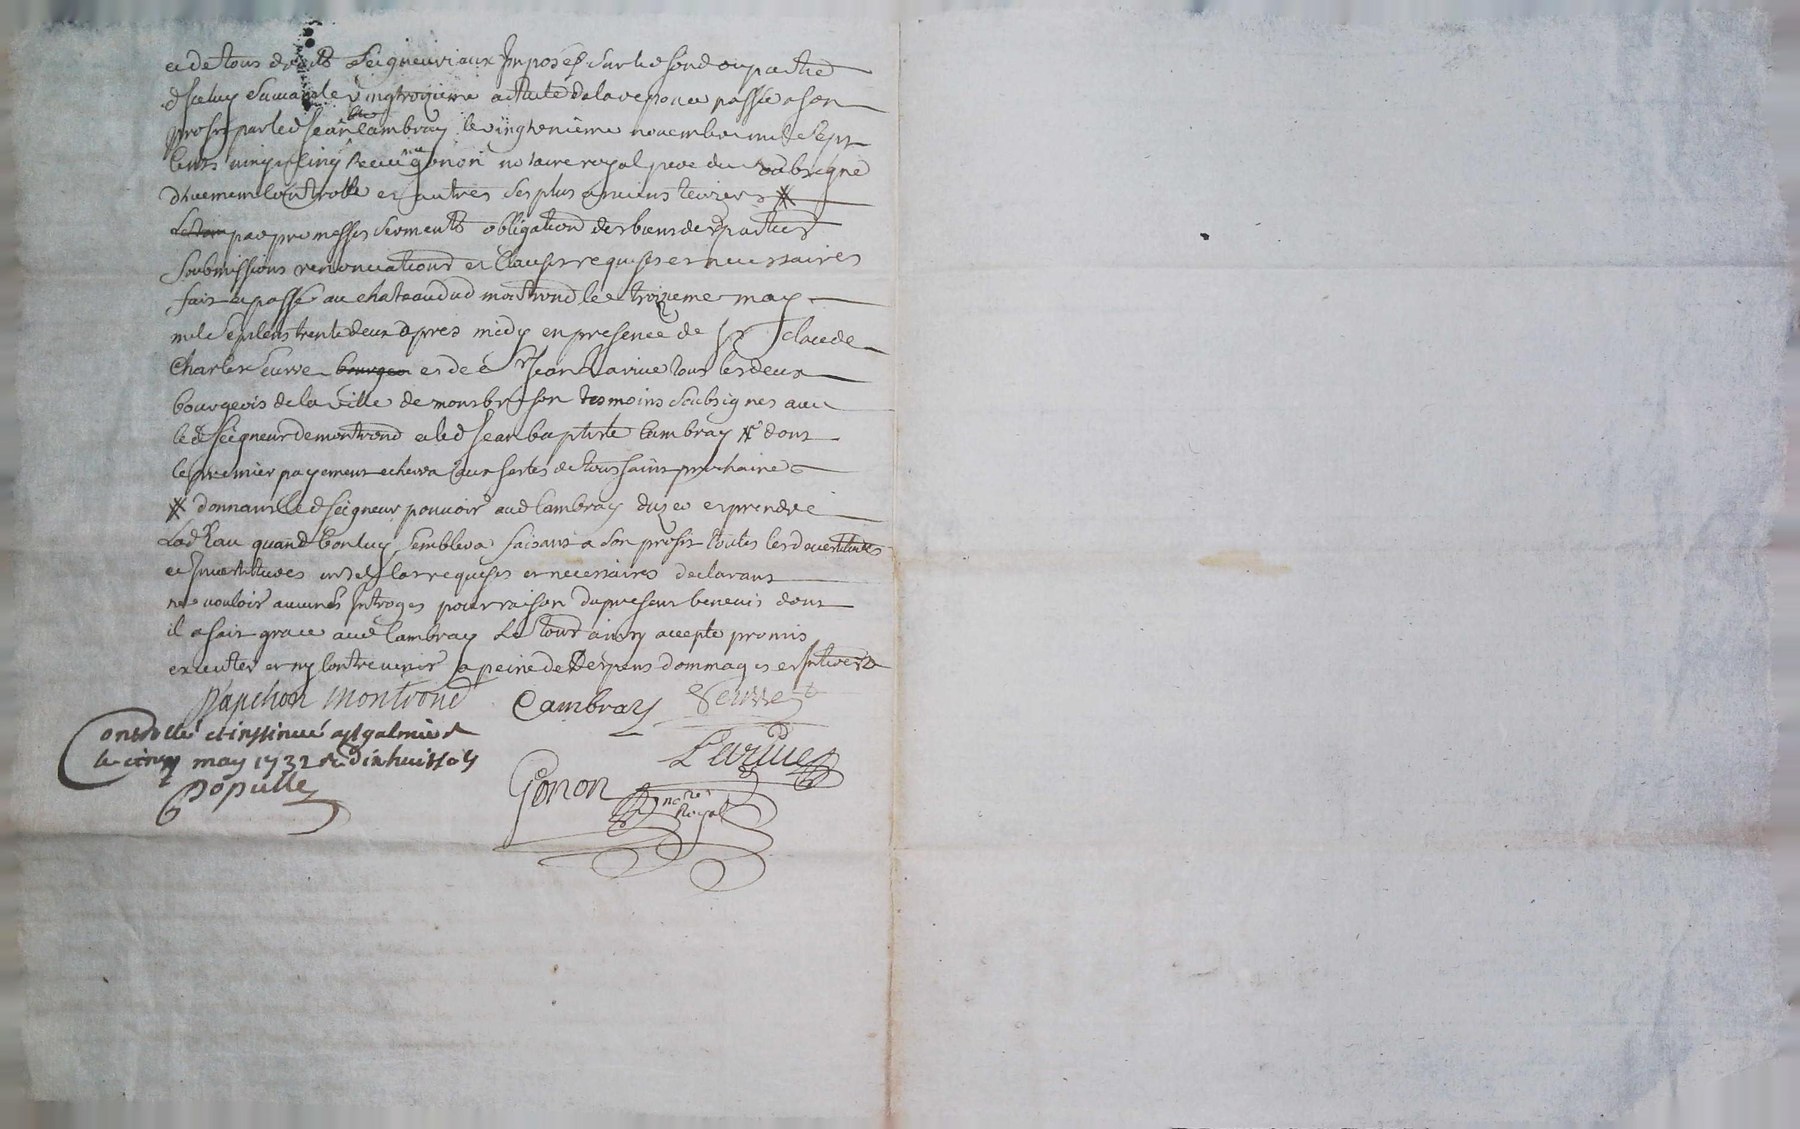 et de tous droits seigneuriaux Imposés sur led fond ou partie
d'Iceluy suivant le vingtroizieme de la reponce passée a son
profit par led Jean bte Cambray le vingtneufieme novembre mil sept
cents vingt cinq Receüe Gonon notaire royal pere du soubsigné
düement Controllé et autres ses plus anciens terriers
par promesses serments obligation des biens desd parties
soubmissions renonciations et Clauses requises et necessaires
fait et passé au chateau dud montrond le troizieme may
mil sept cens trente deux apres midy en presence de sr claude
Charles seurre bourgeois et de sr Jean Larive tous les deux
bourgeois de la ville de montbrison tesmoins soubsignes avec
led seigneur de montrond et led Jean baptiste Cambray dont
le premier payement echerra aux festes de toussaint prochaine
donnant led seigneur pouvoir aud Cambray d'uzer et prendre
Lad Eau quand bon luy semblera faisant a son profit toutes les devestitures
et Investitures en tel cas requises et necessaires declarant
ne vouloir aucunes Introges pour raison du present benevis dont
il a fait grace aud Cambray Le tout ainsy accepté promis
executer et ny Contrevenir a peine de Depens dommages et Interests
Dapchon montrond Cambray Seurre
Controllé et insinué a st galmier
le cinq may 1732 R dixhuit sols
Larive
Populle
Gonon
nore
Royal